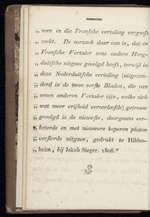 „ men in die Fransche vertaling vergroft
„ vindt. De oorzaak daar van is, dat de
„ Fransche Vertaler eene andere Hoog-
„ duitsche uitgave gevolgd heeft, terwijl in
„ deze Nederduitsche vertaling (uitgezon-
„ derd in de twee eerste Bladen, die van
„ eenen anderen Vertaler zijn, welke zich
„ wat meer vrijheid veroorloofde) getrouw
„ gevolgd is de nieuwste, doorgaans ver-
„ beterde en met nieuwere koperen platen
„ versierde uitgave, gedrukt te Hildes-
„ heim, bij Jakob Sieger. 1806."